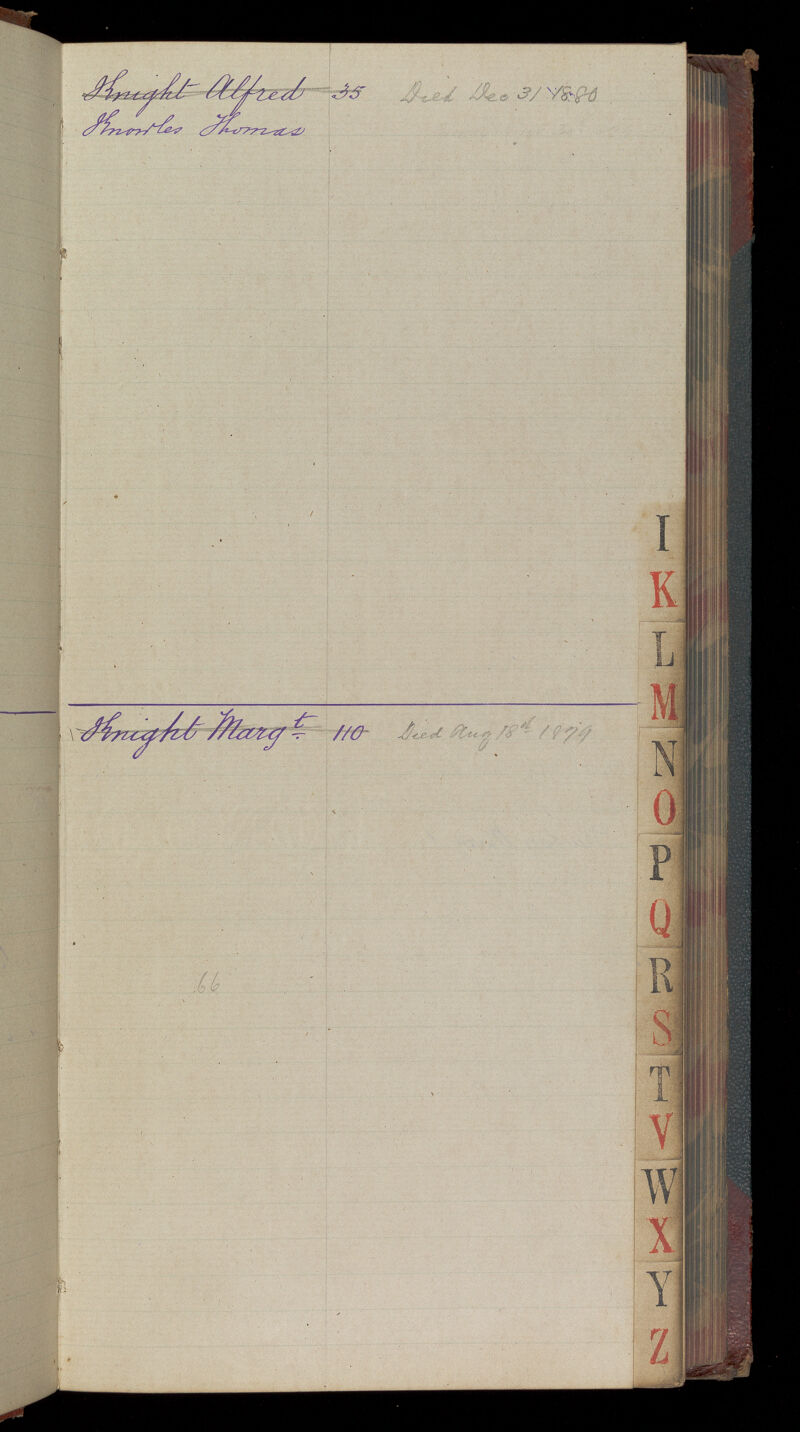 Knight Alfred 35 Died Dec 31 1880
Knowles Thomas
Knight Margt 110 Died Aug 18th 1879
66
I
K
L
M
N
O
P
Q
R
S
T
V
W
X
Y
Z